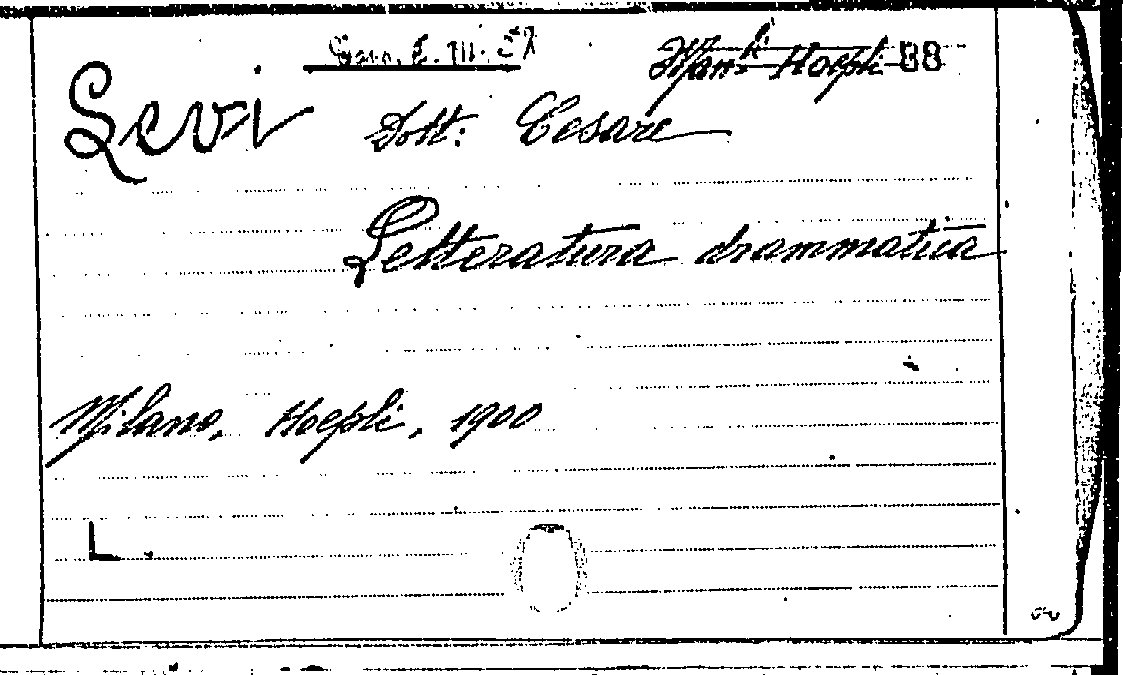 Man.li Hoepli 88
Levi Dott: Cesare
Letteratura drammatica
Milano, Hoepli, 1900
L.